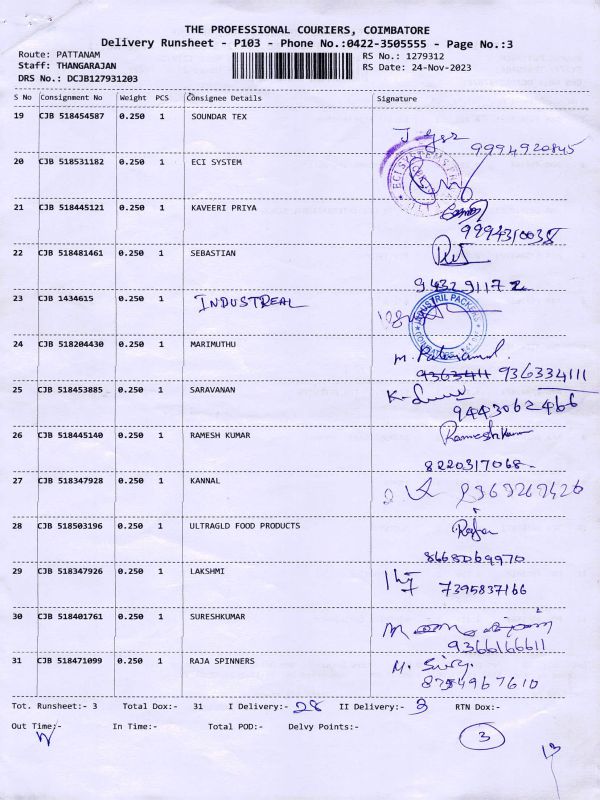 THE PROFESSIONAL COURIERS, COIMBATORE
Delivery Runsheet - P103 - Phone No.:0422-3505555 - Page No.:3
Route: PATTANAM RS No.: 1279312
Staff: THANGARAJAN RS Date: 24-Nov-2023
DRS No.: DCJB127931203
S No Consignment No Weight PCS Consignee Details Signature
19 CJB 518454587 0.250 1 SOUNDAR TEX
9994920845
20 CJB 518531182 0.250 1 ECI SYSTEM
ECI SYSTEMS
21 CJB 518445121 0.250 1 KAVEERI PRIYA
9994310038
22 CJB 518481461 0.250 1 SEBASTIAN
943291172
23 CJB 1434615 0.250 1 INDUSTREAL
24 CJB 518204430 0.250 1 MARIMUTHU
9363411 936334111
25 CJB 518453885 0.250 1 SARAVANAN
9443062466
26 CJB 518445140 0.250 1 RAMESH KUMAR Rameshkumar
8220317068
27 CJB 518347928 0.250 1 KANNAL
28 CJB 518503196 0.250 1 ULTRAGLD FOOD PRODUCTS
8665069970
29 CJB 518347926 0.250 1 LAKSHMI
7395837166
30 CJB 518401761 0.250 1 SURESHKUMAR
9366166611
31 CJB 518471099 0.250 1 RAJA SPINNERS
8754967610
Tot. Runsheet:- 3 Total Dox:- 31 I Delivery:- 28 II Delivery:- 3 RTN Dox:-
Out Time:- In Time:- Total POD:- Delvy Points:-
3
13